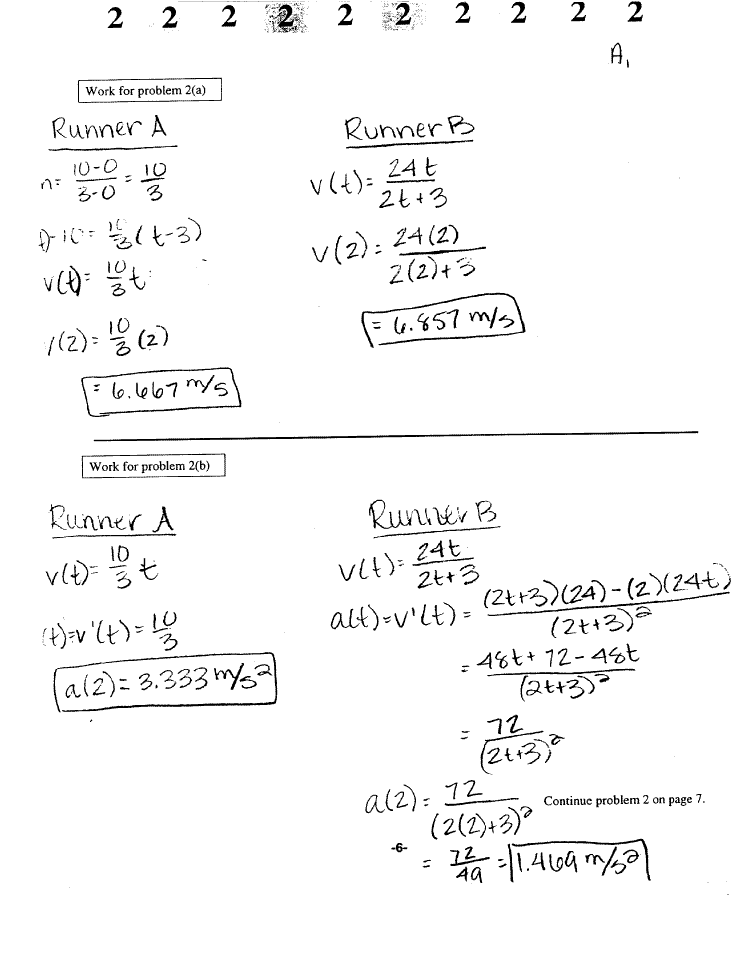 2 2 2 2 2 2 2 2 2 2
A₁
Work for problem 2(a)
Runner A
n= (10-0)/(3-0) = 10/3
-10= 10/3 (t-3)
v(t)= 10/3 t
(2)= 10/3 (2)
= 6.667 m/s
Runner B
v(t)= 24t/(2t+3)
v(2)= 24(2)/(2(2)+3)
= 6.857 m/s
Work for problem 2(b)
Runner A
v(t)= 10/3 t
(t)=v'(t)= 10/3
a(2)= 3.333 m/s²
Runner B
v(t)= 24t/(2t+3)
a(t)=v'(t)= ((2t+3)(24)-(2)(24t))/(2t+3)²
= (48t+72-48t)/(2t+3)²
= 72/(2t+3)²
a(2)= 72/(2(2)+3)²
Continue problem 2 on page 7.
= 72/49 = 1.469 m/s²
-6-